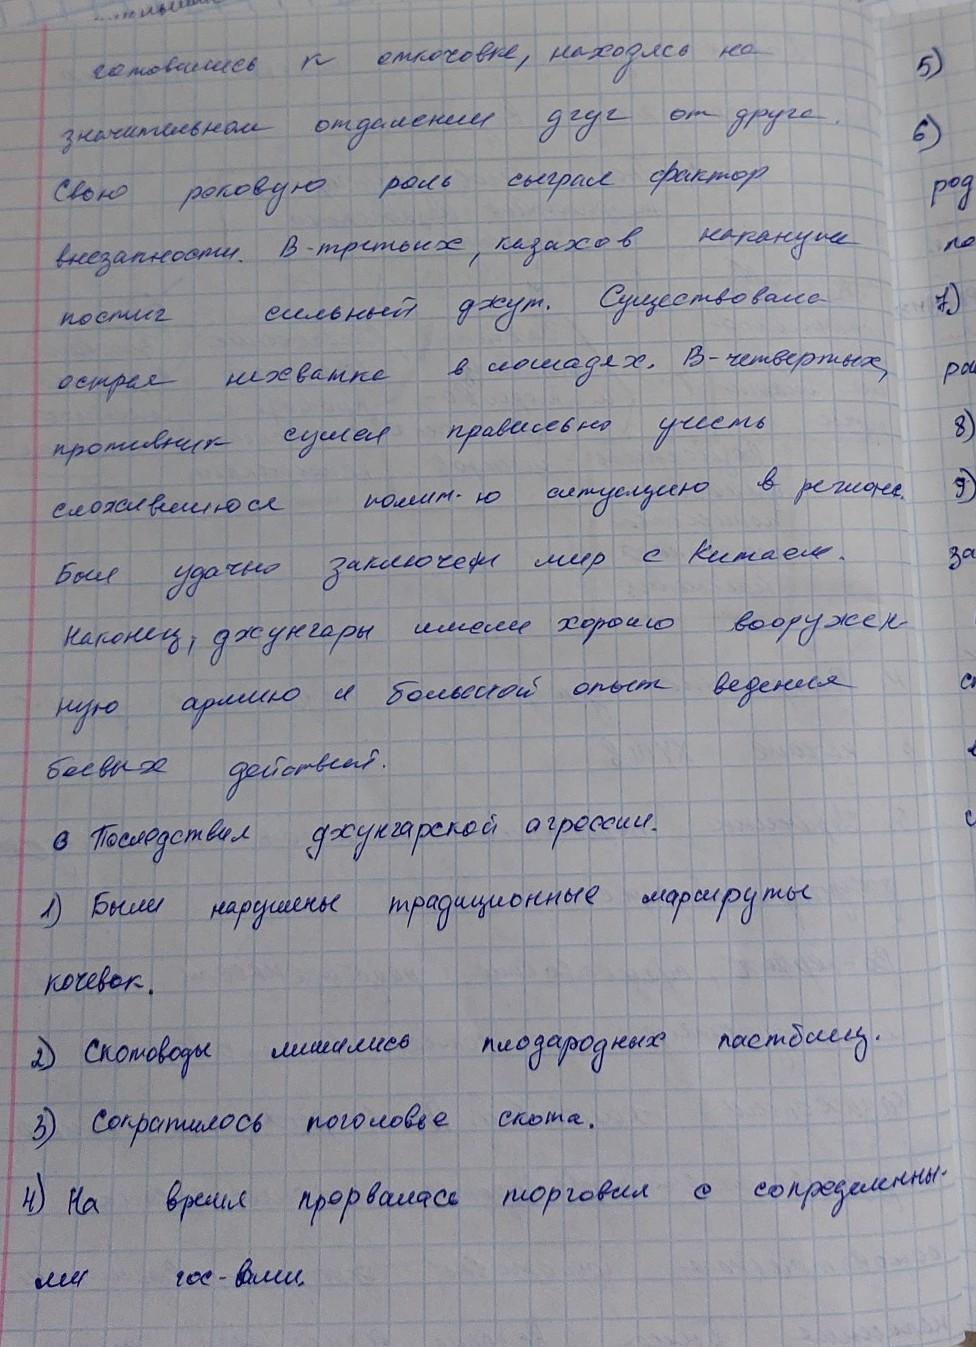 готовились к откочовке, находясь на
значительном отдалении друг от друга.
Свою роковую роль сыграл фактор
внезапности. В-третьих, казахов накануне
постиг сильный джут. Существовала
острая нехватка в лошадях. В-четвертых,
противник сумел правильно учесть
сложившуюся полит-ю ситуацию в регионе.
Был удачно заключен мир с Китаем.
Наконец, джунгары имели хорошо вооружен-
ную армию и большой опыт ведения
боевых действий.
Последствия джунгарской агрессии.
1) Были нарушены традиционные маршруты
кочевок.
2) Скотоводы лишились плодародных пастбищ.
3) Сократилось поголовье скота.
4) На время прорвалась торговля с сопределенны-
ми гос-вами.
5)
6)
род
по
7)
8)
9)
за